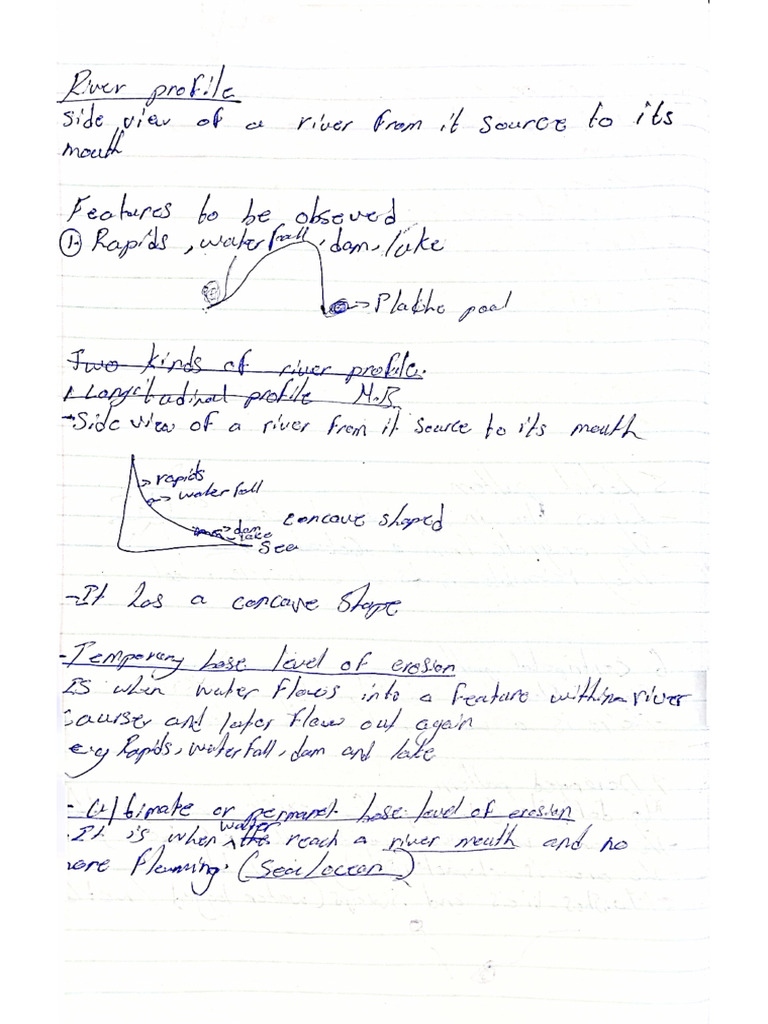 River profile
Side view of a river from it source to its
mouth
Features to be obseved
1. Rapids, waterfall, dam, lake
Pladhe pool
Two kinds of river profile.
1 Longitudinal profile N.B.
- Side view of a river from it source to its mouth
rapids
waterfall
dam
lake
concave shaped
Sea
- It has a concave Shape
- Temporary base level of erosion
IS when water flows into a feature within a river
courser and later flow out again
e.g Rapids, waterfall, dam and lake
- Ultimate or permanet base level of erosion
- It is when water reach a river mouth and no
more flowing. (Sea/ocean)